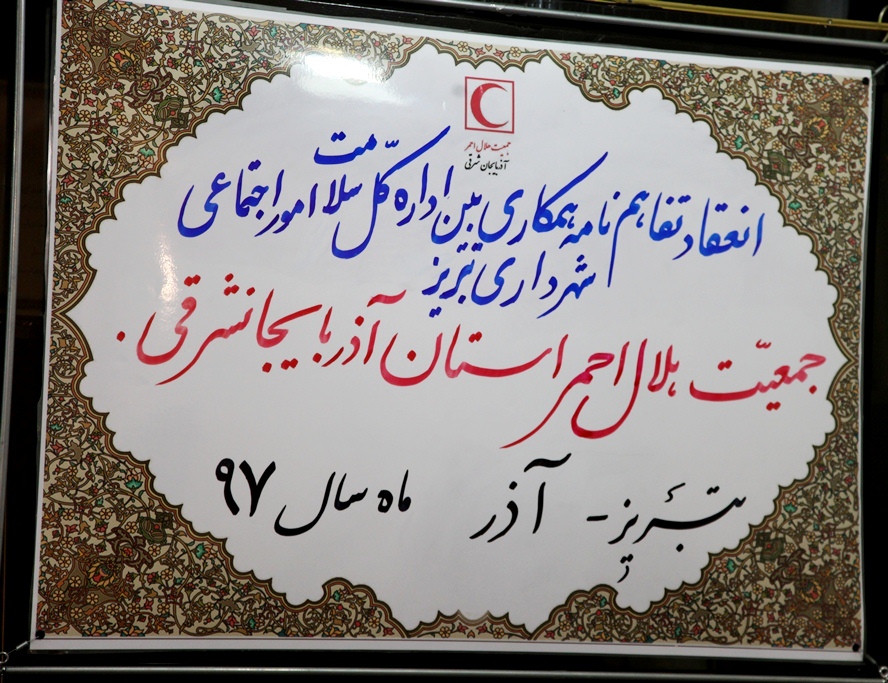 جمعیت هلال احمر
آذربایجان شرقی
انعقاد تفاهم نامه همکاری بین اداره کلّ سلامت امور اجتماعی
شهرداری تبریز
جمعیّت هلال احمر استان آذربایجانشرقی.
تبریز - آذر ماه سال ۹۷